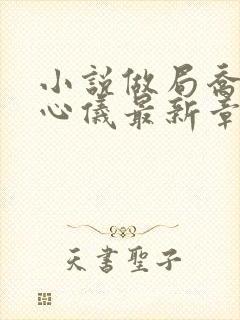 小説做局喬
心儀最新章
天書聖子